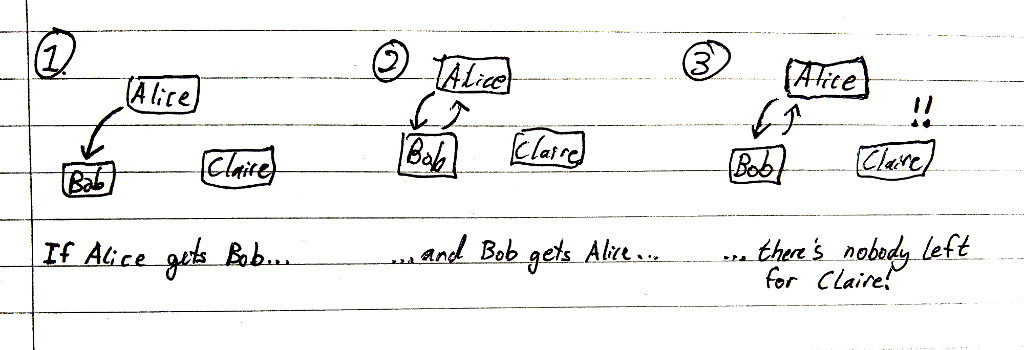 1.
Alice
Bob
Claire
If Alice gets Bob...
2
Alice
Bob
Claire
...and Bob gets Alice...
3
Alice
!!
Bob
Claire
... there's nobody left
for Claire!